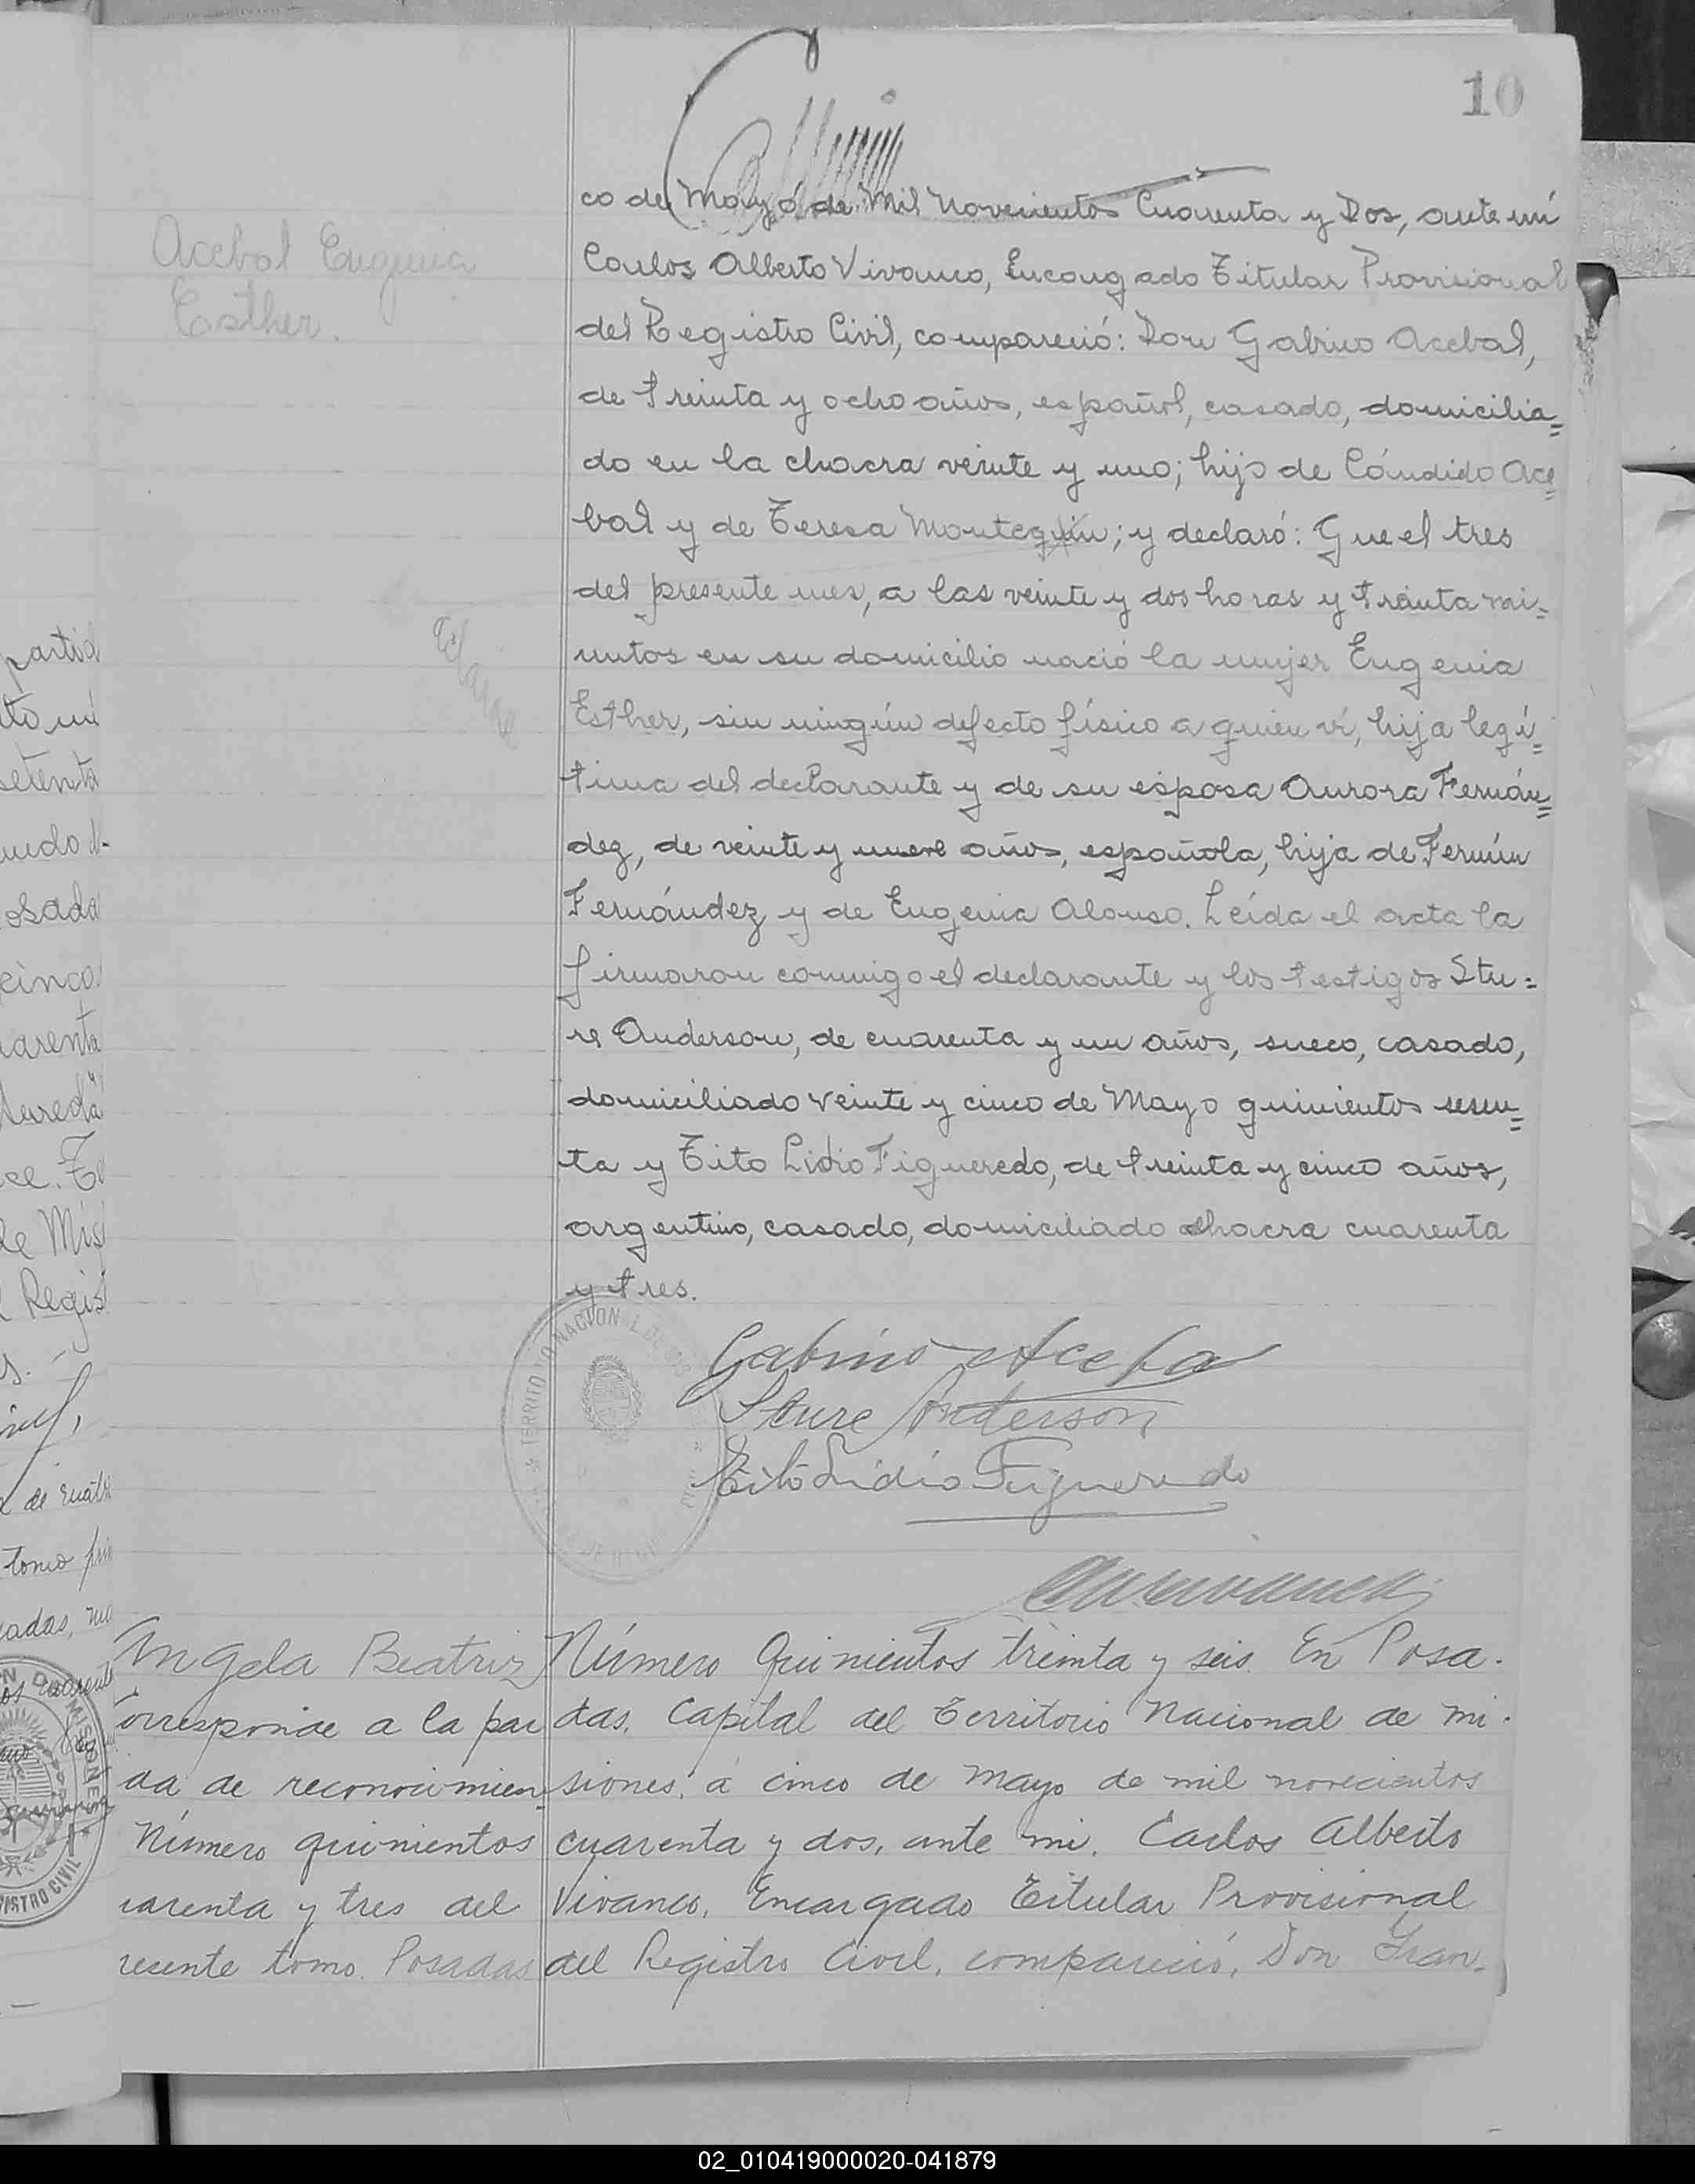 10
co de Mayo de Mil Novecientos Cuarenta y Dos, ante mí
Carlos Alberto Vivanco, Encargado Titular Provisional
del Registro Civil, compareció: Don Gabino Acebal,
de treinta y ocho años, español, casado, domicilia=
do en la chacra veinte y uno; hijo de Cándido Ace=
bal y de Teresa Montequin; y declaró: Que el tres
del presente mes, a las veinte y dos horas y treinta mi=
nutos en su domicilio nació la mujer Eugenia
Esther, sin ningún defecto físico a quien ví, hija legí=
tima del declarante y de su esposa Aurora Fernán=
dez, de veinte y nueve años, española, hija de Fermín
Fernández y de Eugenia Alonso. Leída el acta la
firmaron conmigo el declarante y los testigos Stu=
re Anderson, de cuarenta y un años, sueco, casado,
domiciliado veinte y cinco de Mayo quinientos sesen=
ta y Tito Lidio Figueredo, de treinta y cinco años,
argentino, casado, domiciliado chacra cuarenta
y tres.
Acebal Eugenia
Esther.
Gabino Aceba
Sture Anderson
Tito Lidio Figueredo
TERRITORIO NACIONAL DE
Angela Beatriz
orresponde a la par
da de reconocimien=
Número quinientos
uarenta y tres del
resente tomo. Posadas
Número Quinientos treinta y seis. En Posa-
das, Capital del Territorio Nacional de Mi-
siones, á cinco de Mayo de mil novecientos
cuarenta y dos, ante mi, Carlos Alberto
Vivanco, Encargado Titular Provisional
del Registro Civil, compareció, Don Fran-
partid
setenta
osada
cinco
uarenta
de Mis
Regis
de cuatr
tomo pri
MISIONES
REGISTRO CIVIL
02_010419000020-041879